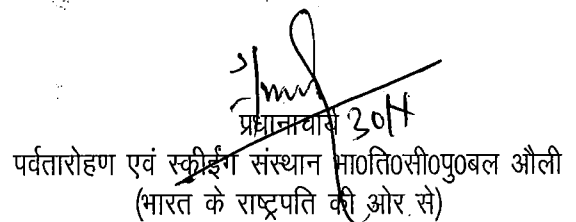 प्रधानाचार्य 30/4
पर्वतारोहण एवं स्कीईंग संस्थान भा0ति0सी0पु0बल औली
(भारत के राष्ट्रपति की ओर से)